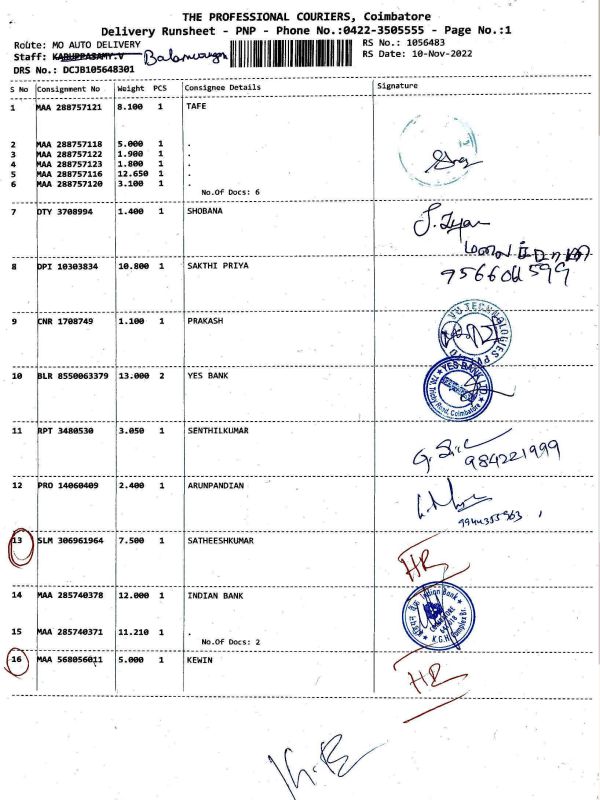 THE PROFESSIONAL COURIERS, Coimbatore
Delivery Runsheet - PNP - Phone No.:0422-3505555 - Page No.:1
Route: MO AUTO DELIVERY
RS No.: 1056483
Staff: KARUPPASAMY.V
RS Date: 10-Nov-2022
DRS No.: DCJB105648301
S No Consignment No Weight PCS Consignee Details Signature
1 MAA 288757121 8.100 1 TAFE
2 MAA 288757118 5.000 1 .
3 MAA 288757122 1.900 1 .
4 MAA 288757123 1.800 1 .
5 MAA 288757116 12.650 1 .
6 MAA 288757120 3.100 1 .
No.Of Docs: 6
7 DTY 3708994 1.400 1 SHOBANA
8 DPI 10303834 10.800 1 SAKTHI PRIYA
9 CNR 1708749 1.100 1 PRAKASH
VU TECHNOLOGIES PVT LTD
10 BLR 8550063379 13.000 2 YES BANK
YES BANK LTD
Coimbatore
11 RPT 3480530 3.050 1 SENTHILKUMAR
984221999
12 PRO 14060409 2.400 1 ARUNPANDIAN
13 SLM 306961964 7.500 1 SATHEESHKUMAR
HR
14 MAA 285740378 12.000 1 INDIAN BANK
Indian Bank
15 MAA 285740371 11.210 1 .
No.Of Docs: 2
16 MAA 568056011 5.000 1 KEWIN
HR